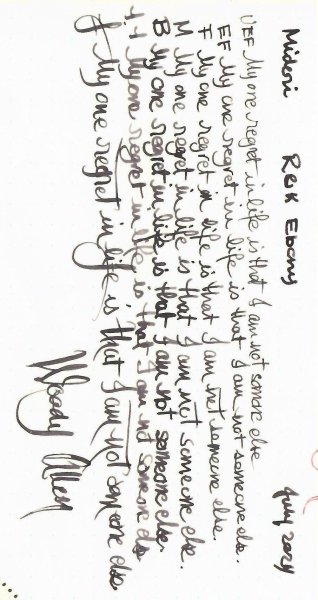 Midori R&K Ebony July 2024
UEF My one regret in life is that I am not someone else
EF My one regret in life is that I am not someone else.
F My one regret in life is that I am not someone else.
M My one regret in life is that I am not someone else.
B My one regret in life is that I am not someone else.
1.1 My one regret in life is that I am not someone else
My one regret in life is that I am not someone else
Woody Allen